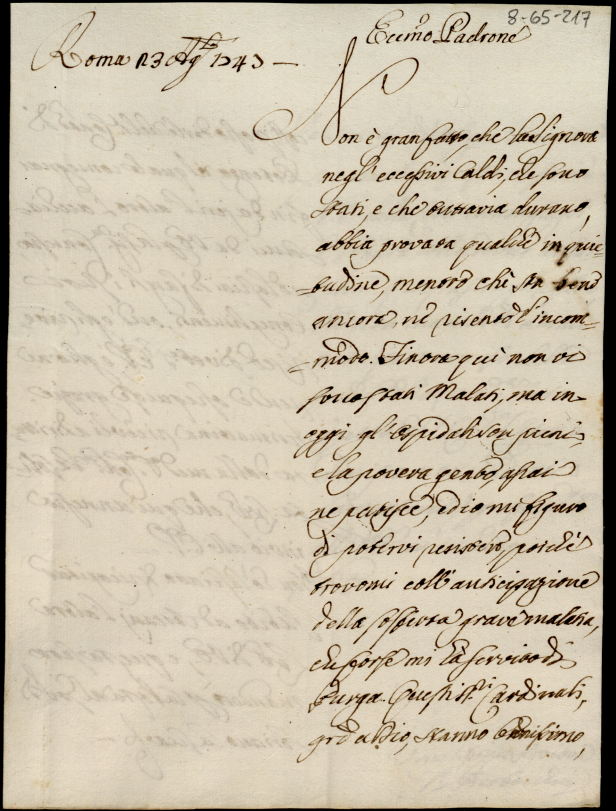 8-65-217
Eccmo Padrone
Roma 23 Agto 1743
Non è gran fatto che la Signora
negl' eccessivi Caldi, che sono
stati, e che tuttavia durano,
abbia provata qualche inquie-
-tudine, mentre chi sta bene
ancora, ne risente l'incom-
-modo. Finora quì non vi
sono stati Malati, ma in
oggi gl'Ospidali son pieni
e la povera gente assai
ne patisce, ed io mi figuro
di potervi resistere, poiche
trovomi coll'anticipazione
della sofferta grave malatia,
che forse mi hà servito di
Purga. Questi SSri Cardinali,
grã a Dio, stanno benissimo,